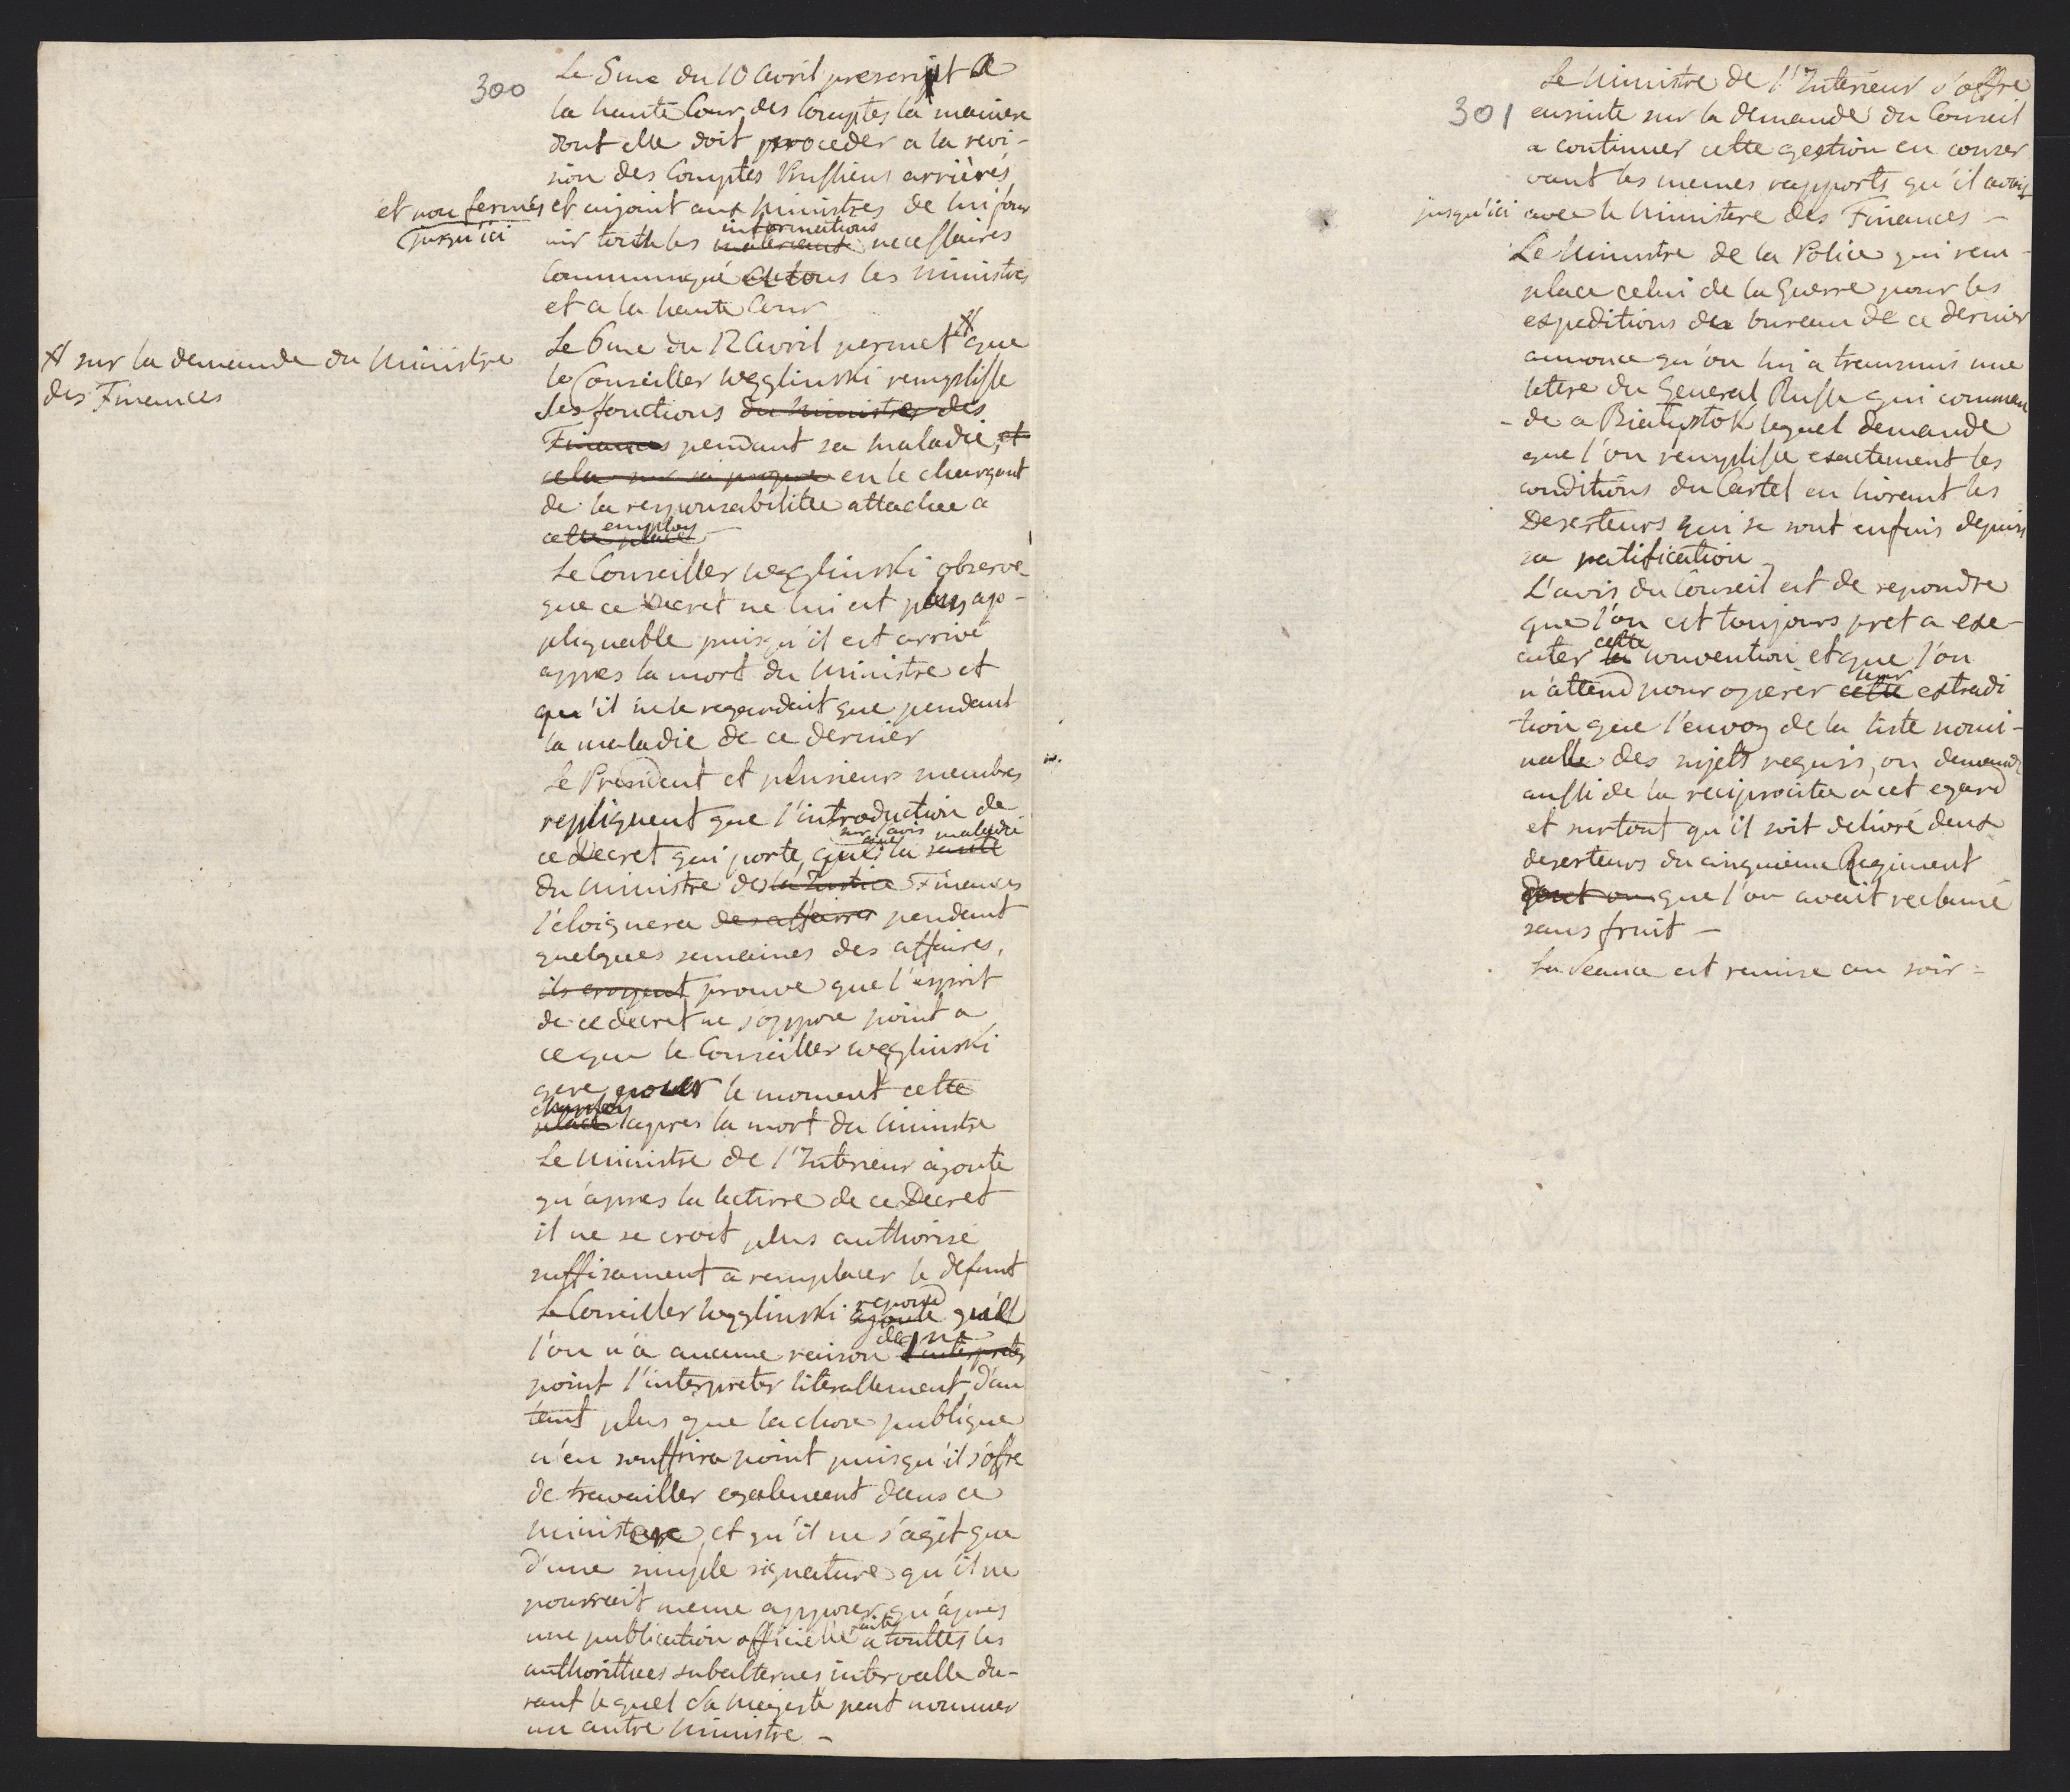 300
Le 5me du 10 Avril prescript a
la haute Cour des Comptes la maniere
dont elle doit proceder a la revi-
sion des Comptes Prussiens arrièrés
et non fermés
jusqu'ici
et enjoint aux Ministres de lui four
nir toutes les informations
materiaux necessaires
Communiqué a tous les Ministres
et a la haute Cour
Le 6me du 12 Avril permet # que
# sur la demande du Ministre
des Finances
le Conseiller Węglinski remplisse
ses fonctions du Ministre des
Finances pendant sa maladie, et
cela sur sa propre en le chargant
de la responsabilitée attachée a
cette place employ -
Le Conseiller Węglinski observe
que ce Decret ne lui est plus ap-
pliquable puisqu'il est arrivé
apres la mort du Ministre et
qu'il ne le regardait que pendant
la maladie de ce dernier
Le President et plusieurs membres
repliquent que l'introduction de
sur l'avis que maladie
ce Decret qui porte, que la santé
du Ministre des la Justice Finances
l'eloignera des affaires pendant
quelques semaines des affaires,
ils croyent prouve que l'esprit
de ce decret ne s'oppose point a
ce que le Conseiller Węglinski
gere pour le moment cette
place apres la mort du Ministre
Le Ministre de l'Interieur ajoute
qu'apres la lecture de ce Decret
il ne se croit plus authorisé
suffisament a remplacer le defunt
Le Conseiller Węglinski ajoute repond que
l'on n'a aucune raison d'interpreter de ne
point l'interpreter literallement d'au
tant plus que la chose publique
n'en souffrira point puisqu'il s'offre
de travailler egalement dans ce
Ministere, et qu'il ne s'agit que
d'une simple signature qu'il ne
pourrait meme apposer qu'apres
une publication officielle faite a toutes les
authorittées subalternes, intervalle du-
rant lequel Sa Majesté peut nommer
un autre Ministre -
301
Le Ministre de l'Interieur s'offre
ensuite sur la demande du Conseil
a continuer cette gestion en conser
vant les memes rapports qu'il avait
jusqu'ici avec le Ministere des Finances -
Le Ministre de la Police qui rem-
place celui de la Guerre pour les
expeditions des bureau de ce dernier
annonce qu'on lui a transmis une
lettre du General Russe qui comman
-de a Bialystok lequel demande
que l'on remplisse exactement les
conditions du Cartel en livrant les
Deserteurs qui se sont enfuis depuis
sa ratification
L'avis du Conseil est de repondre
que l'on est toujours pret a exe-
cuter la cette convention et que l'on
n'attend pour operer cette leur extradi
tion que l'envoy de la liste nomi-
nalle des sujets requis, on demande
aussi de la reciprocitée a cet egard
et surtout qu'il soit delivré deux
deserteurs du cinquieme Regiment
dont on que l'on avait reclamé
sans fruit -
La Seance est remise au soir -